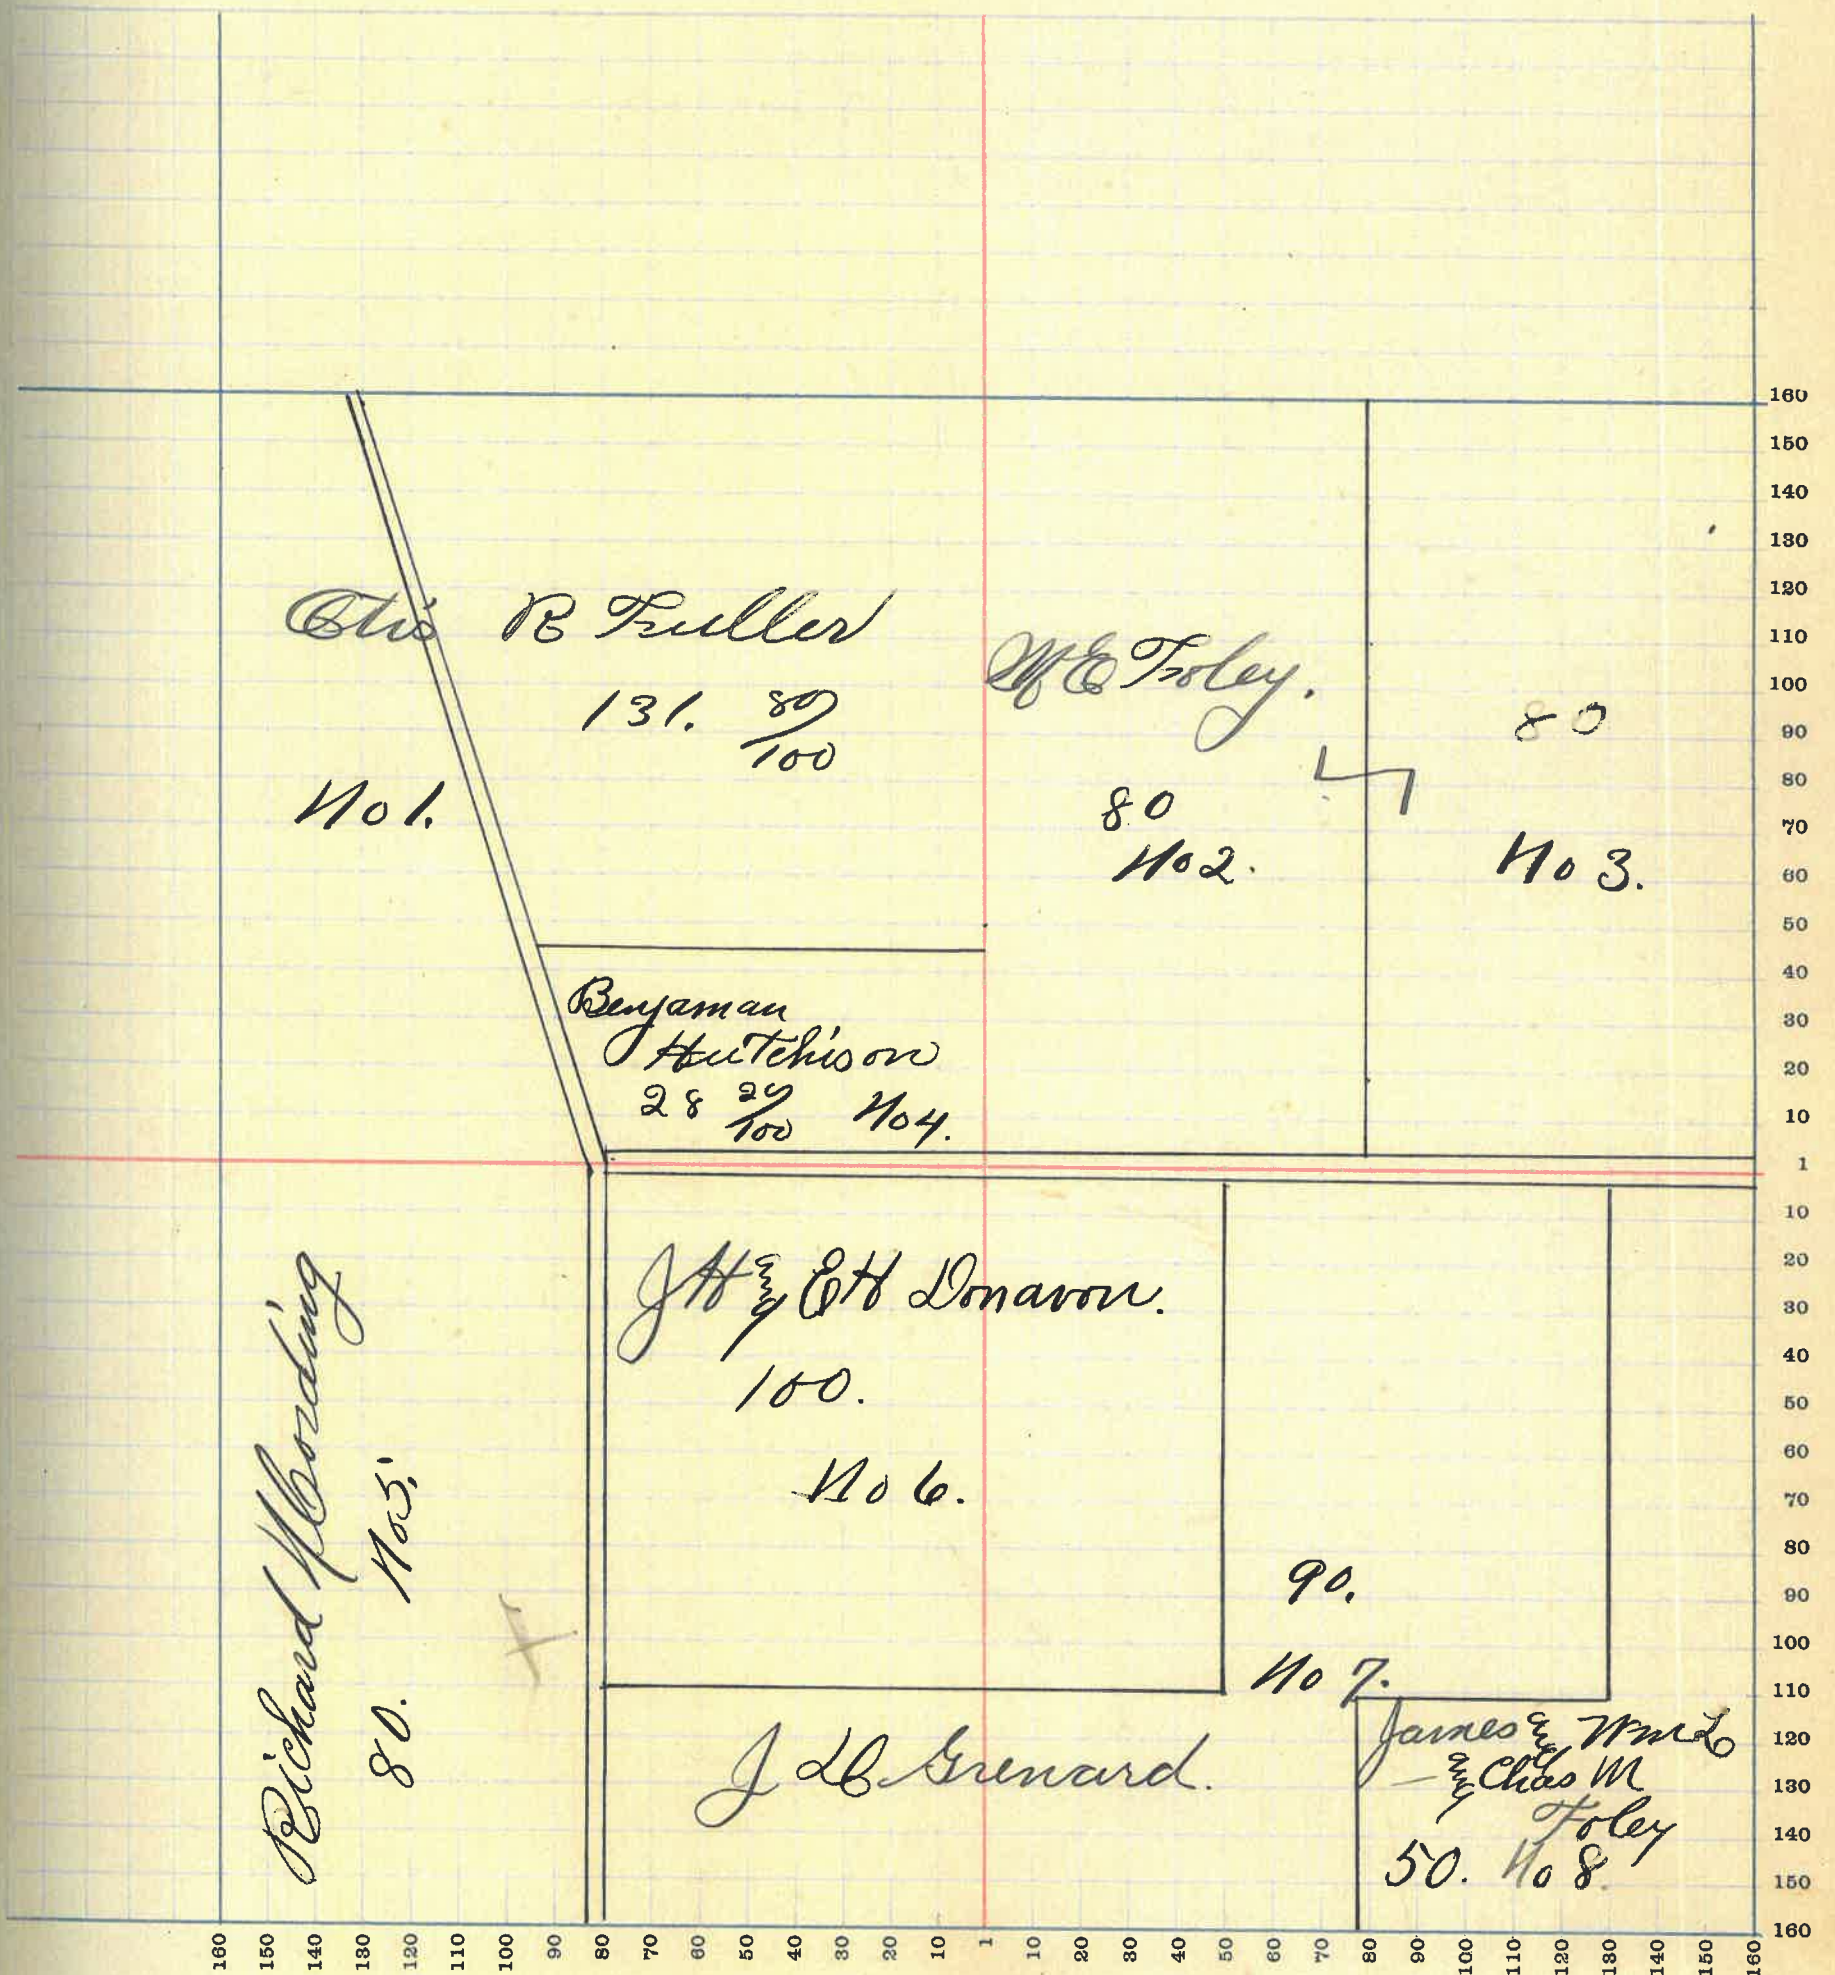 Otis R Fuller
131. 80/100
No 1.
W E Foley.
80
No 2.
80
No 3.
Benjaman
Hutchison
28 20/100 No 4.
Richard
80. No 5.
J H & E H Donavon.
100.
No 6.
90.
No 7.
J L Grenard.
James & Wm L
& Chas M
Foley
50. No 8.
160
150
140
130
120
110
100
90
80
70
60
50
40
30
20
10
1
10
20
30
40
50
60
70
80
90
100
110
120
130
140
150
160
160 150 140 130 120 110 100 90 80 70 60 50 40 30 20 10 1 10 20 30 40 50 60 70 80 90 100 110 120 130 140 150 160